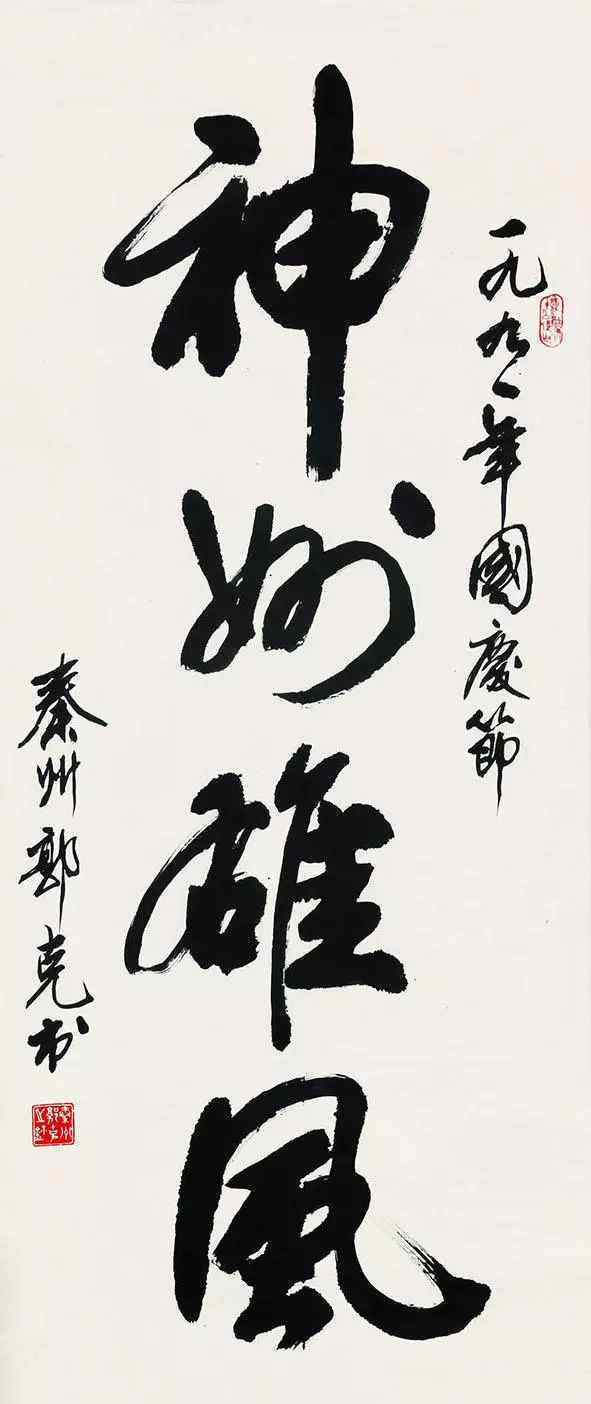 一九九一年國慶節
神州雄風
秦州郭克书